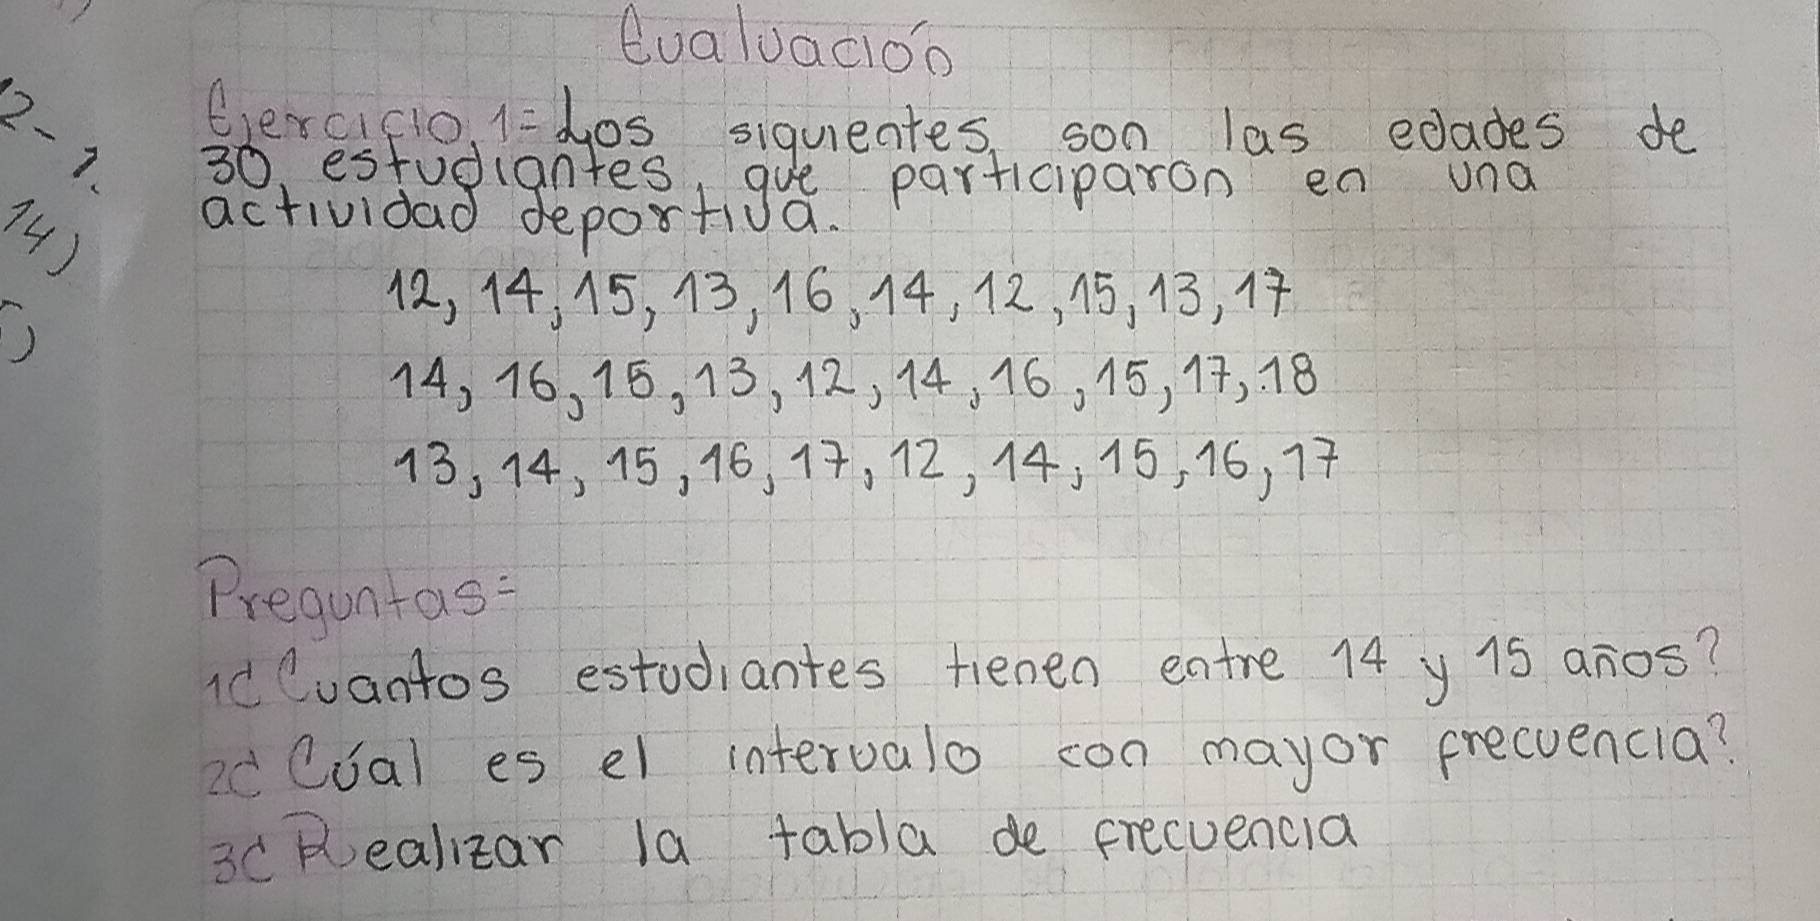 Evaluación
Ejercicio 1= Los siguientes son las edades de
30 estudiantes, que participaron en una
actividad deportiva.
12, 14, 15, 13, 16, 14, 12, 15, 13, 17
14, 16, 15, 13, 12, 14, 16, 15, 17, 18
13, 14, 15, 16, 17, 12, 14, 15, 16, 17
Preguntas=
1¿ Cuantos estudiantes tienen entre 14 y 15 años?
2¿ Cúal es el intervalo con mayor frecuencia?
3¿ Realizar la tabla de frecuencia
2-
14)